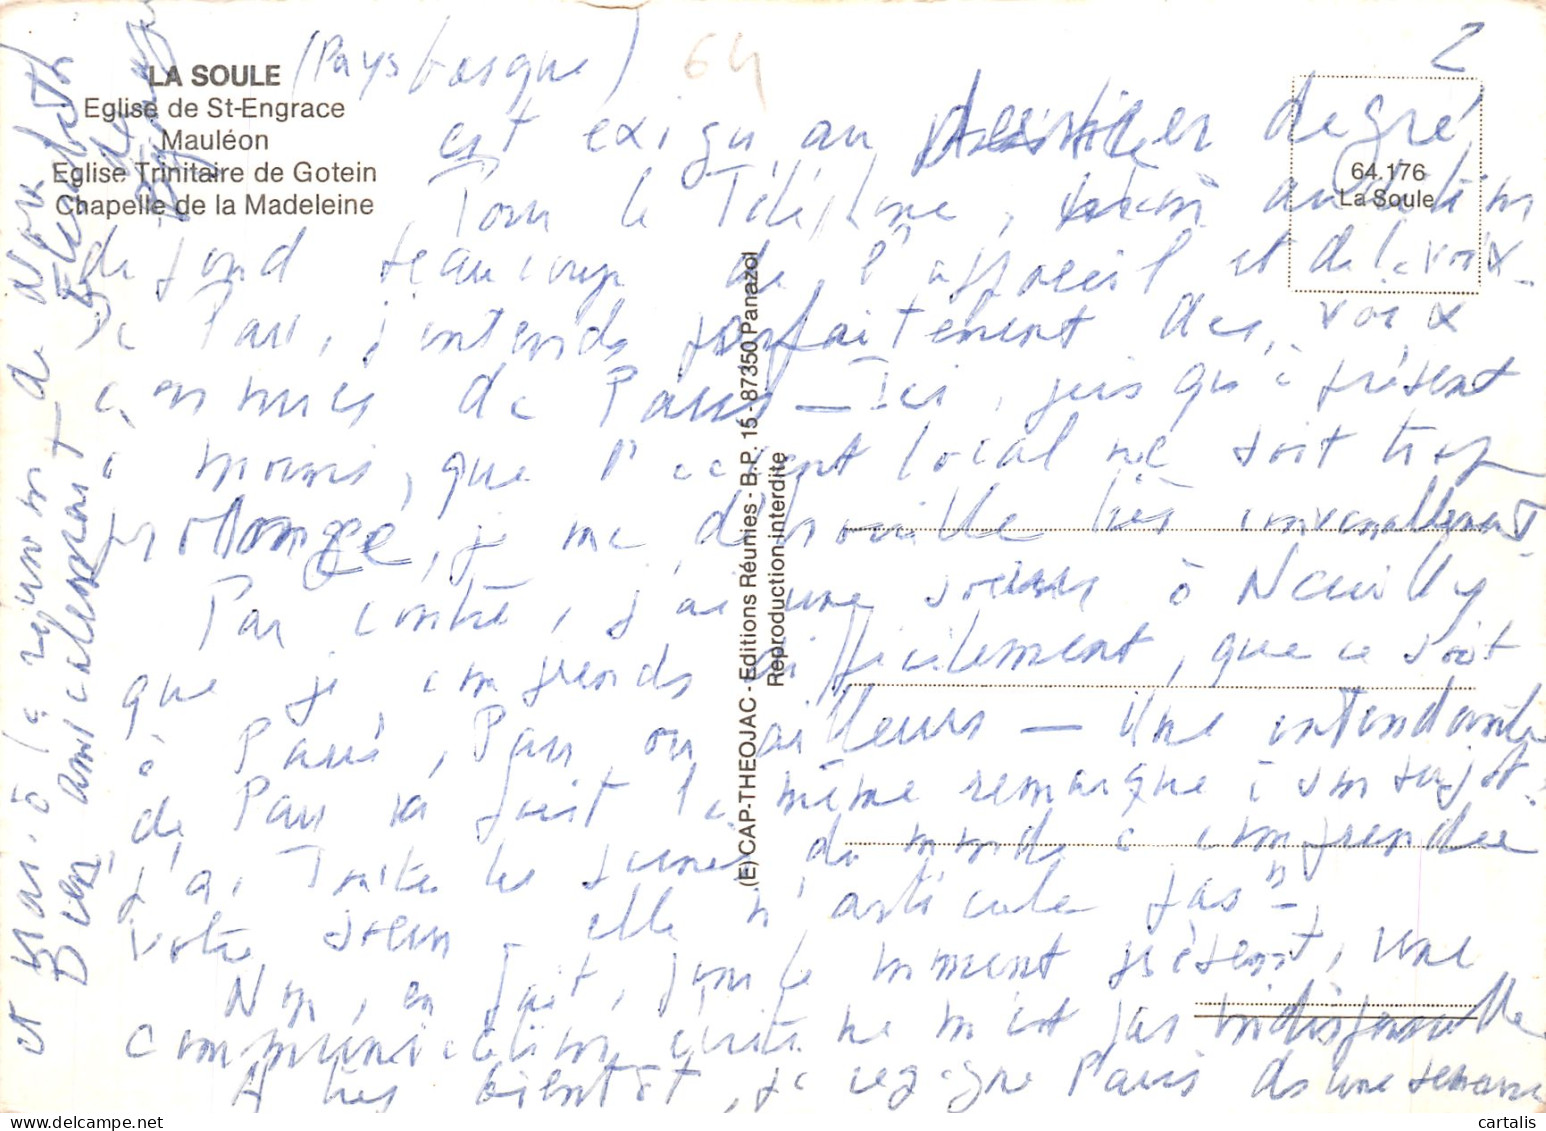 LA SOULE (Pays basque) 64 2
Eglise de St-Engrace
Mauléon
Eglise Trinitaire de Gotein
Chapelle de la Madeleine
64.176
La Soule
est exigu au dernier degré
Pour le Téléphone, mon audition
dépend beaucoup de l'appareil et de la voix.
De Pau, j'entends parfaitement des voix
connues de Paris — Ici, jusqu'à présent
à moins, que l'accent local ne soit trop
prolongé, je me débrouille très convenablement.
Par contre, j'ai une soeur à Neuilly
que je comprends difficilement, que ce soit
à Paris, Pau ou ailleurs — Une intendante
de Pau m'a fait la même remarque à son sujet:
"J'ai toutes les peines du monde à comprendre
votre soeur, elle n'articule pas"
Non, en fait, pour le moment présent, une
communication écrite ne m'est pas indispensable
A très bientôt, je regagne Paris ds une semaine
et Mari à la réunion de Nou
Bien amicalement
Elisabeth
(E) CAP-THEOJAC - Editions Réunies - B.P. 15 - 87350 Panazol
Reproduction interdite
cartalis